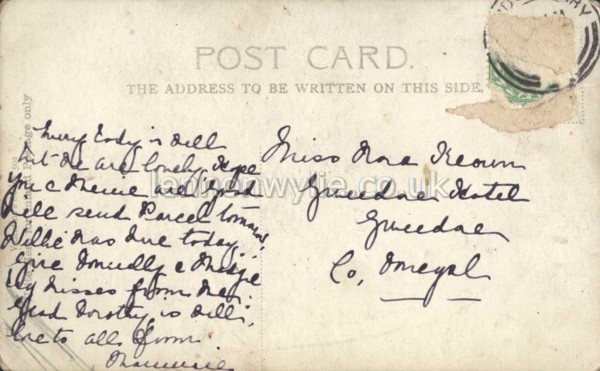 POST CARD.
THE ADDRESS TO BE WRITTEN ON THIS SIDE.
Every body is well
but we are lonely. Hope
you & are good
Will send Parcel tomorrow
Willie was here today,
Give &
big kisses from me.
Glad Dorothy is well,
love to all from
Miss Nora Keown
Gweedore Hotel
Gweedore
Co, Donegal
lennonwylie.co.uk
only